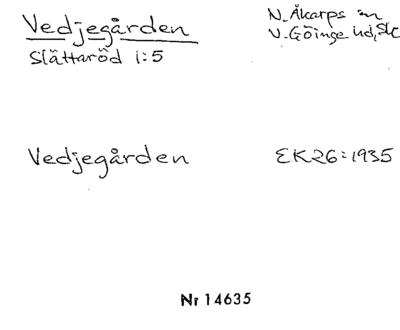 Vedjegården
N. Åkarps sn
Slättaröd 1:5
V. Göinge hd, Sk
Vedjegården
EK26:1935
Nr 14635